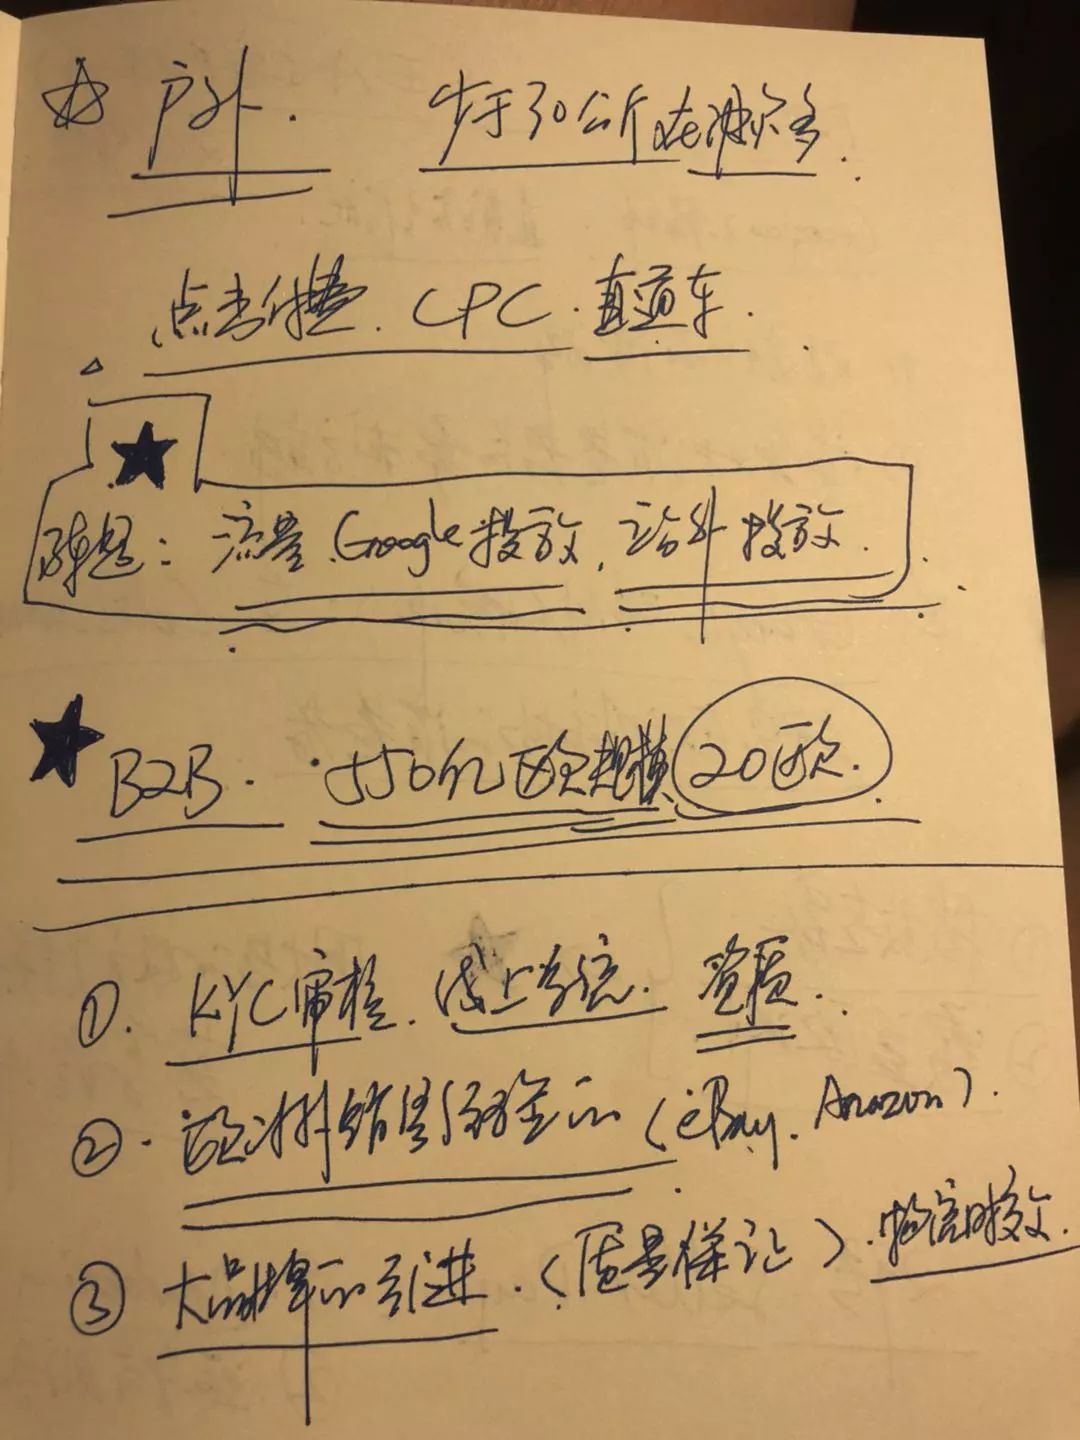 户外. 步于30公斤
点击付费. CPC. 直通车.
难题: 流量. Google投放, 站外投放.
B2B. 550亿欧规模 20欧.
①. KYC审核. 线上系统. 资质.
②. 欧洲销售经验 (eBay. Amazon).
③ 大品牌 引进. (质量保证).